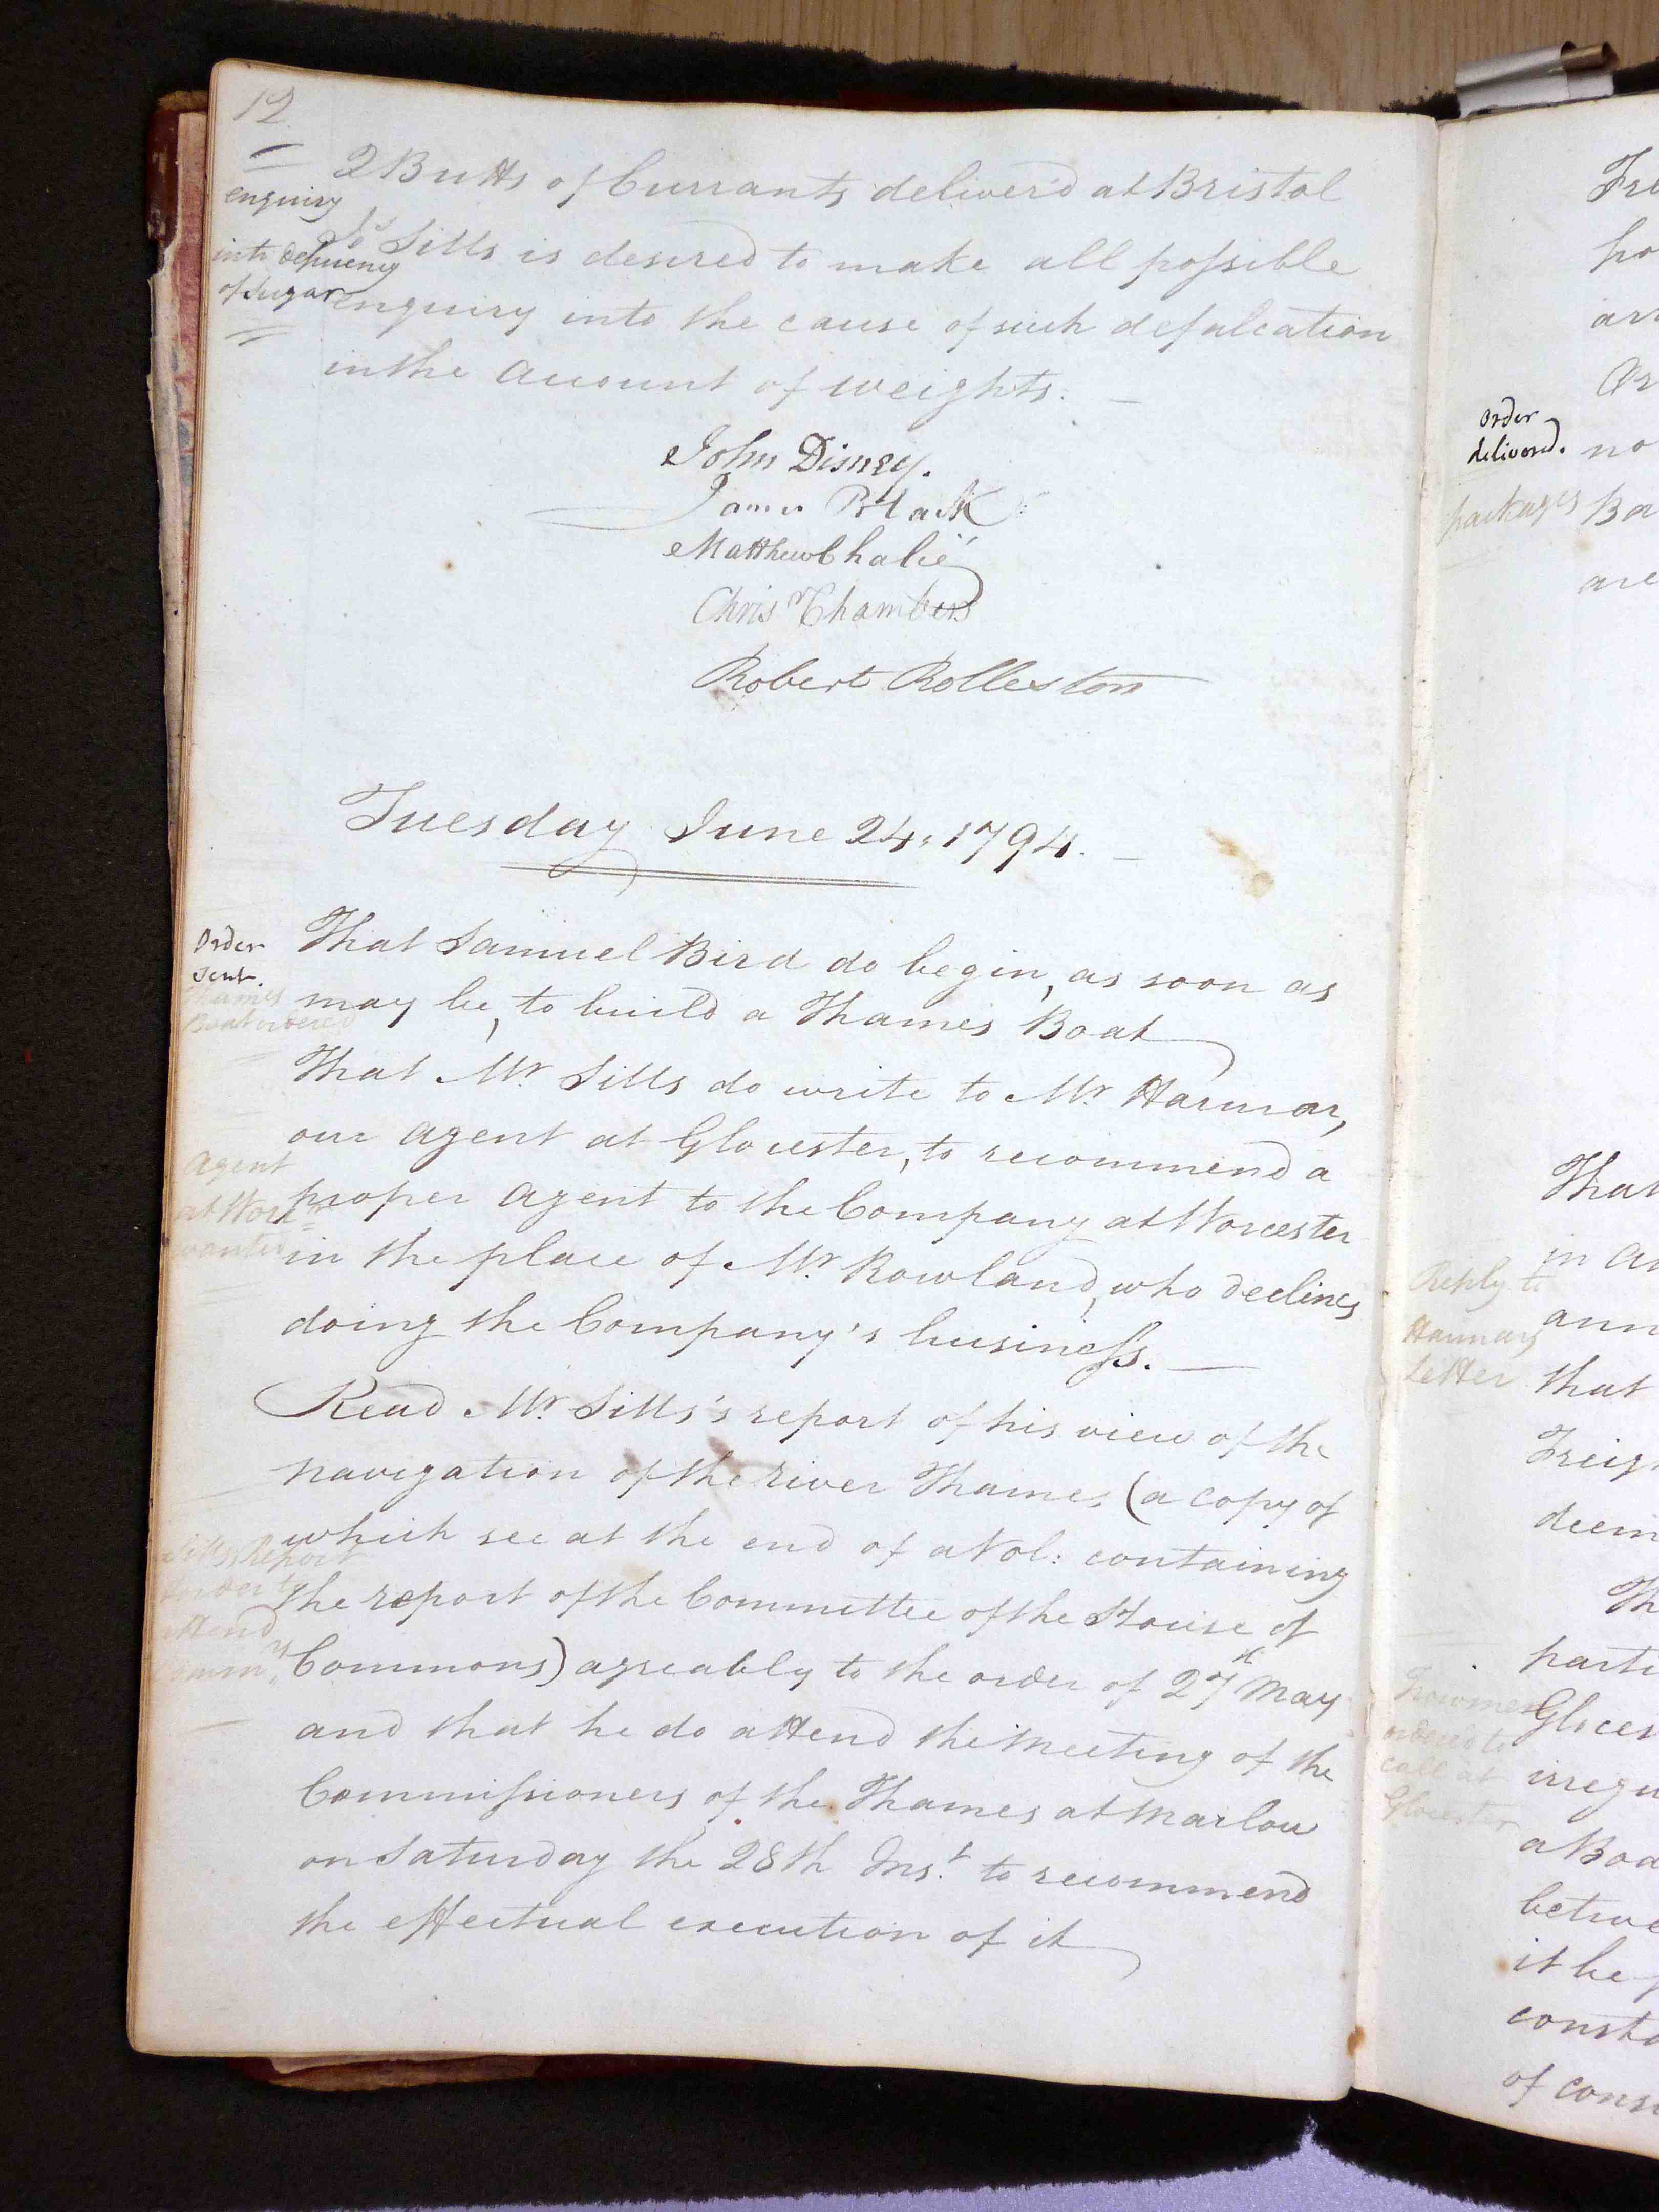 12
2 Butts of Currants, deliver'd at Bristol
enquiry
into deficiency
of sugar
Jos Sills is desired to make all possible
enquiry into the cause of such defalcation
in the account of weights. —
John Disney.
James Black
Matthew Chalié
Chrisr Chambers
Robert Rolleston
Tuesday June 24, 1794. —
Order
sent.
Thames
Boat ordered
That Samuel Bird do begin, as soon as
may be, to build a Thames Boat
That Mr. Sills do write to Mr. Harmar,
our agent at Glocester, to recommend a
Agent
at Worcr
wanted
proper agent to the Company at Worcester
in the place of Mr. Rowland, who declines
doing the Company's business. —
Read Mr. Sills's report of his view of the
navigation of the river Thames (a copy of
which see at the end of a Vol: containing
Sills's Report
order to
attend
the report of the Committee of the House of
Commons) agreably to the order of 27th May
and that he do attend the Meeting of the
Commissioners of the Thames at Marlow
on Saturday the 28th Inst. to recommend
the effectual execution of it
Order
deliverd.
packages
no
are
That
in
Reply to
Harmars
Letter
that
deem
Trowmen
ordered to
call at
Glocester
it be
of